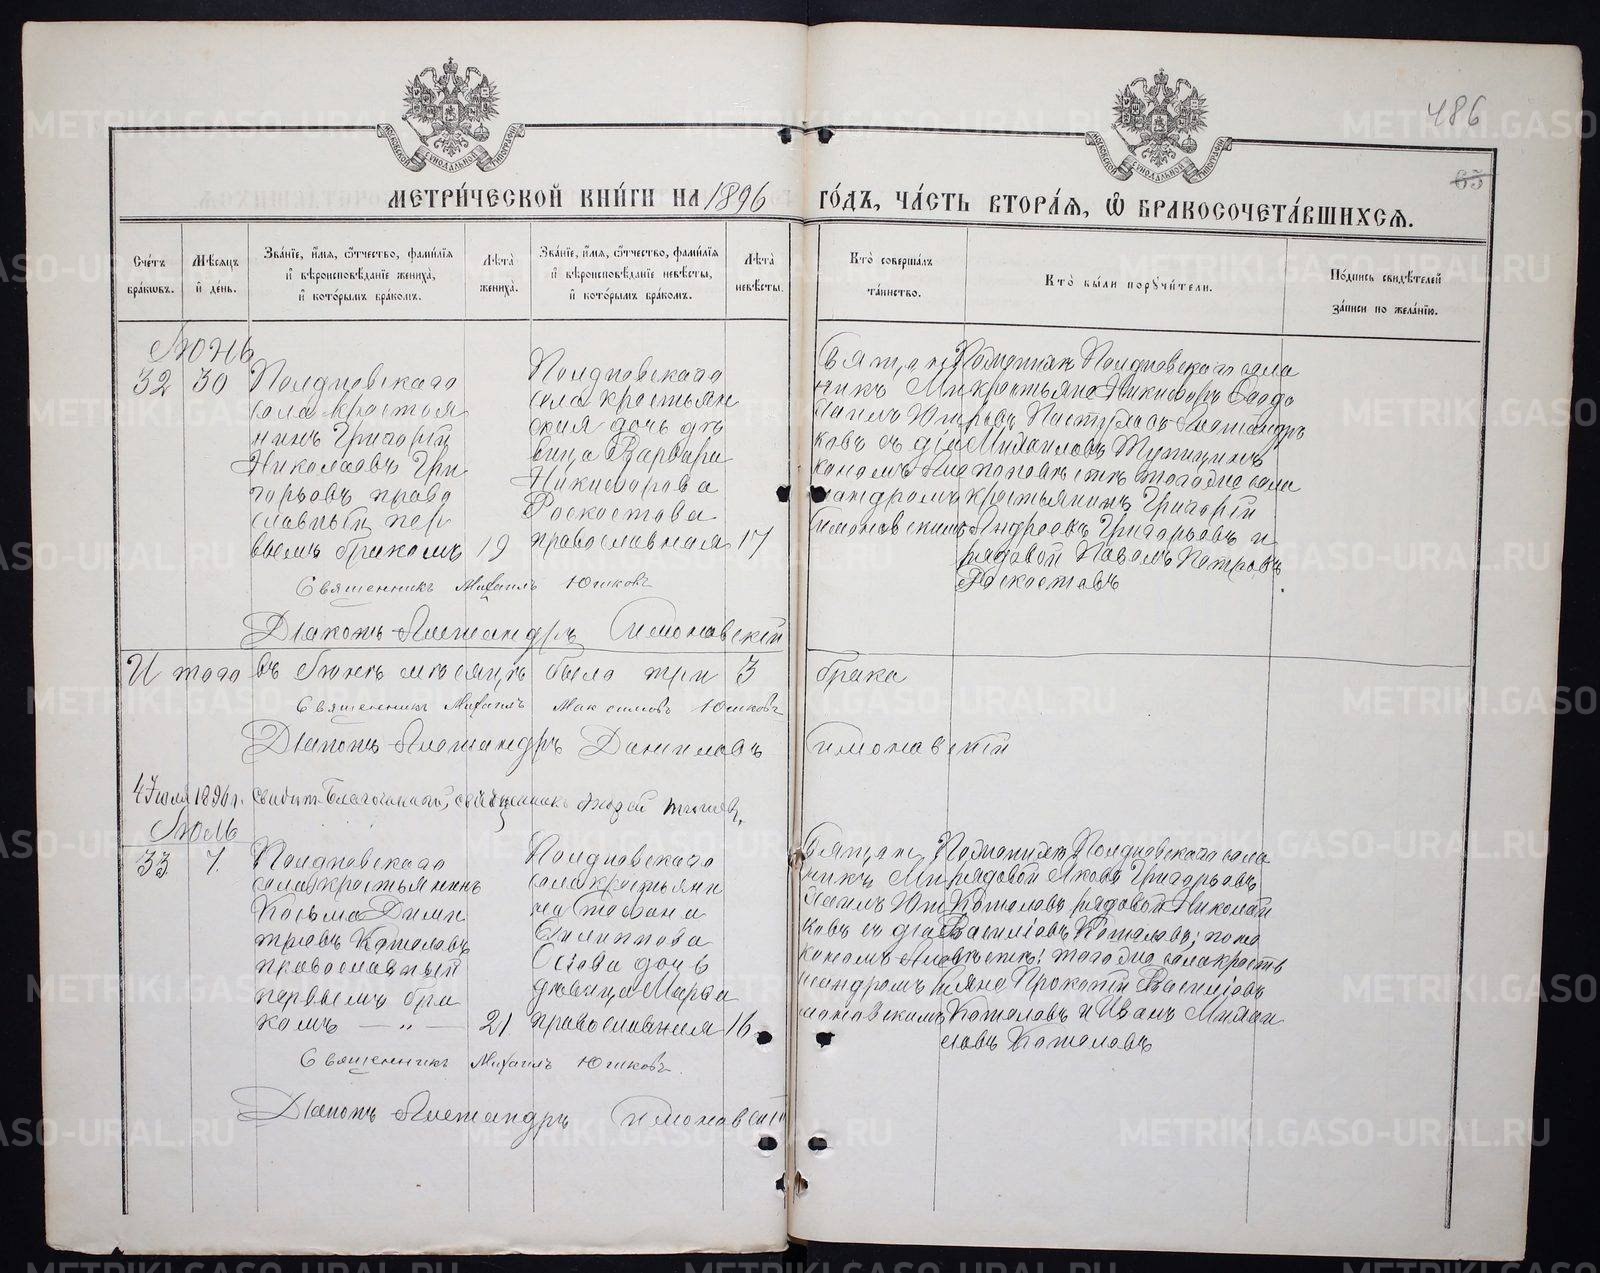 486
65
МЕТРИ́ЧЕСКОЙ КНИ́ГИ НА 1896 ГО́ДЪ, ЧА́СТЬ ВТОРА́Я, Ѡ БРАКОСОЧЕТА́ВШИХСЯ.
Сче́тъ бра́ковъ.
Мѣ́сяцъ и де́нь.
Зва́нїе, и́мя, ѻ҆́тчество, фами́лїя
и҆ вѣроисповѣ́данїе жениха̀,
и҆ кото́рымъ бра́комъ.
Лѣ́та жениха̀.
Зва́нїе, и́мя, ѻ҆́тчество, фами́лїя
и҆ вѣроисповѣ́данїе невѣ́сты,
и҆ кото́рымъ бра́комъ.
Лѣ́та невѣ́сты.
Кто̀ соверша́лъ
та́инство.
Кто̀ бы́ли порꙋчи́тели.
По́дпись свидѣ́телей
за́писи по жела́нїю.
Іюнь
32 30
Полдневскаго
села крестья
нинъ Григорій
Николаевъ Гри
горьевъ право
славный пер
вымъ бракомъ 19
Полдневскаго
села крестьян
ская дочь дѣ
вица Варвара
Никифорова
Роскостова
православная 17
Священ
никъ Ми
хаилъ Юш
ковъ съ діа
кономъ Але
ксандромъ
Симоновскимъ
По женихѣ Полдневскаго села
крестьяне Никифоръ
Петровъ
Михаиловъ
по невѣстѣ того же села
крестьянинъ Григорій
Андреевъ Григорьевъ и
рядовой Павелъ Петровъ
Роскостовъ
Священникъ Михаилъ Юшковъ
Діаконъ Александръ Симоновскій
Итого въ Іюнѣ мѣсяцѣ было три 3 брака
Священникъ Михаилъ Максимовъ Юшковъ
Діаконъ Александръ Даниловъ Симоновскій
4 Іюля 1896 г. Свидѣт. Благочинный, священникъ
Іюль
33 7.
Полдневскаго
села крестьянинъ
Косьма Дими
тріевъ Коталовъ
православный
первымъ бра
комъ — „ — 21
Полдневскаго
села крестьяни
на Стефана
Филиппова
Осева дочь
дѣвица Марѳа
православная 16
Священ
никъ Ми
хаилъ Юш
ковъ съ діа
кономъ Але
ксандромъ Си
моновскимъ
По женихѣ: Полдневскаго села
рядовой Яковъ Григорьевъ
Коталовъ рядовой Николай
Василіевъ Коталовъ; по не
вѣстѣ: того же села кресть
яне Прокопій Василіевъ
Коталовъ и Иванъ Михаи
ловъ Коталовъ
Священникъ Михаилъ Юшковъ.
Діаконъ Александръ Симоновскій
METRIKI.GASO-URAL.RU